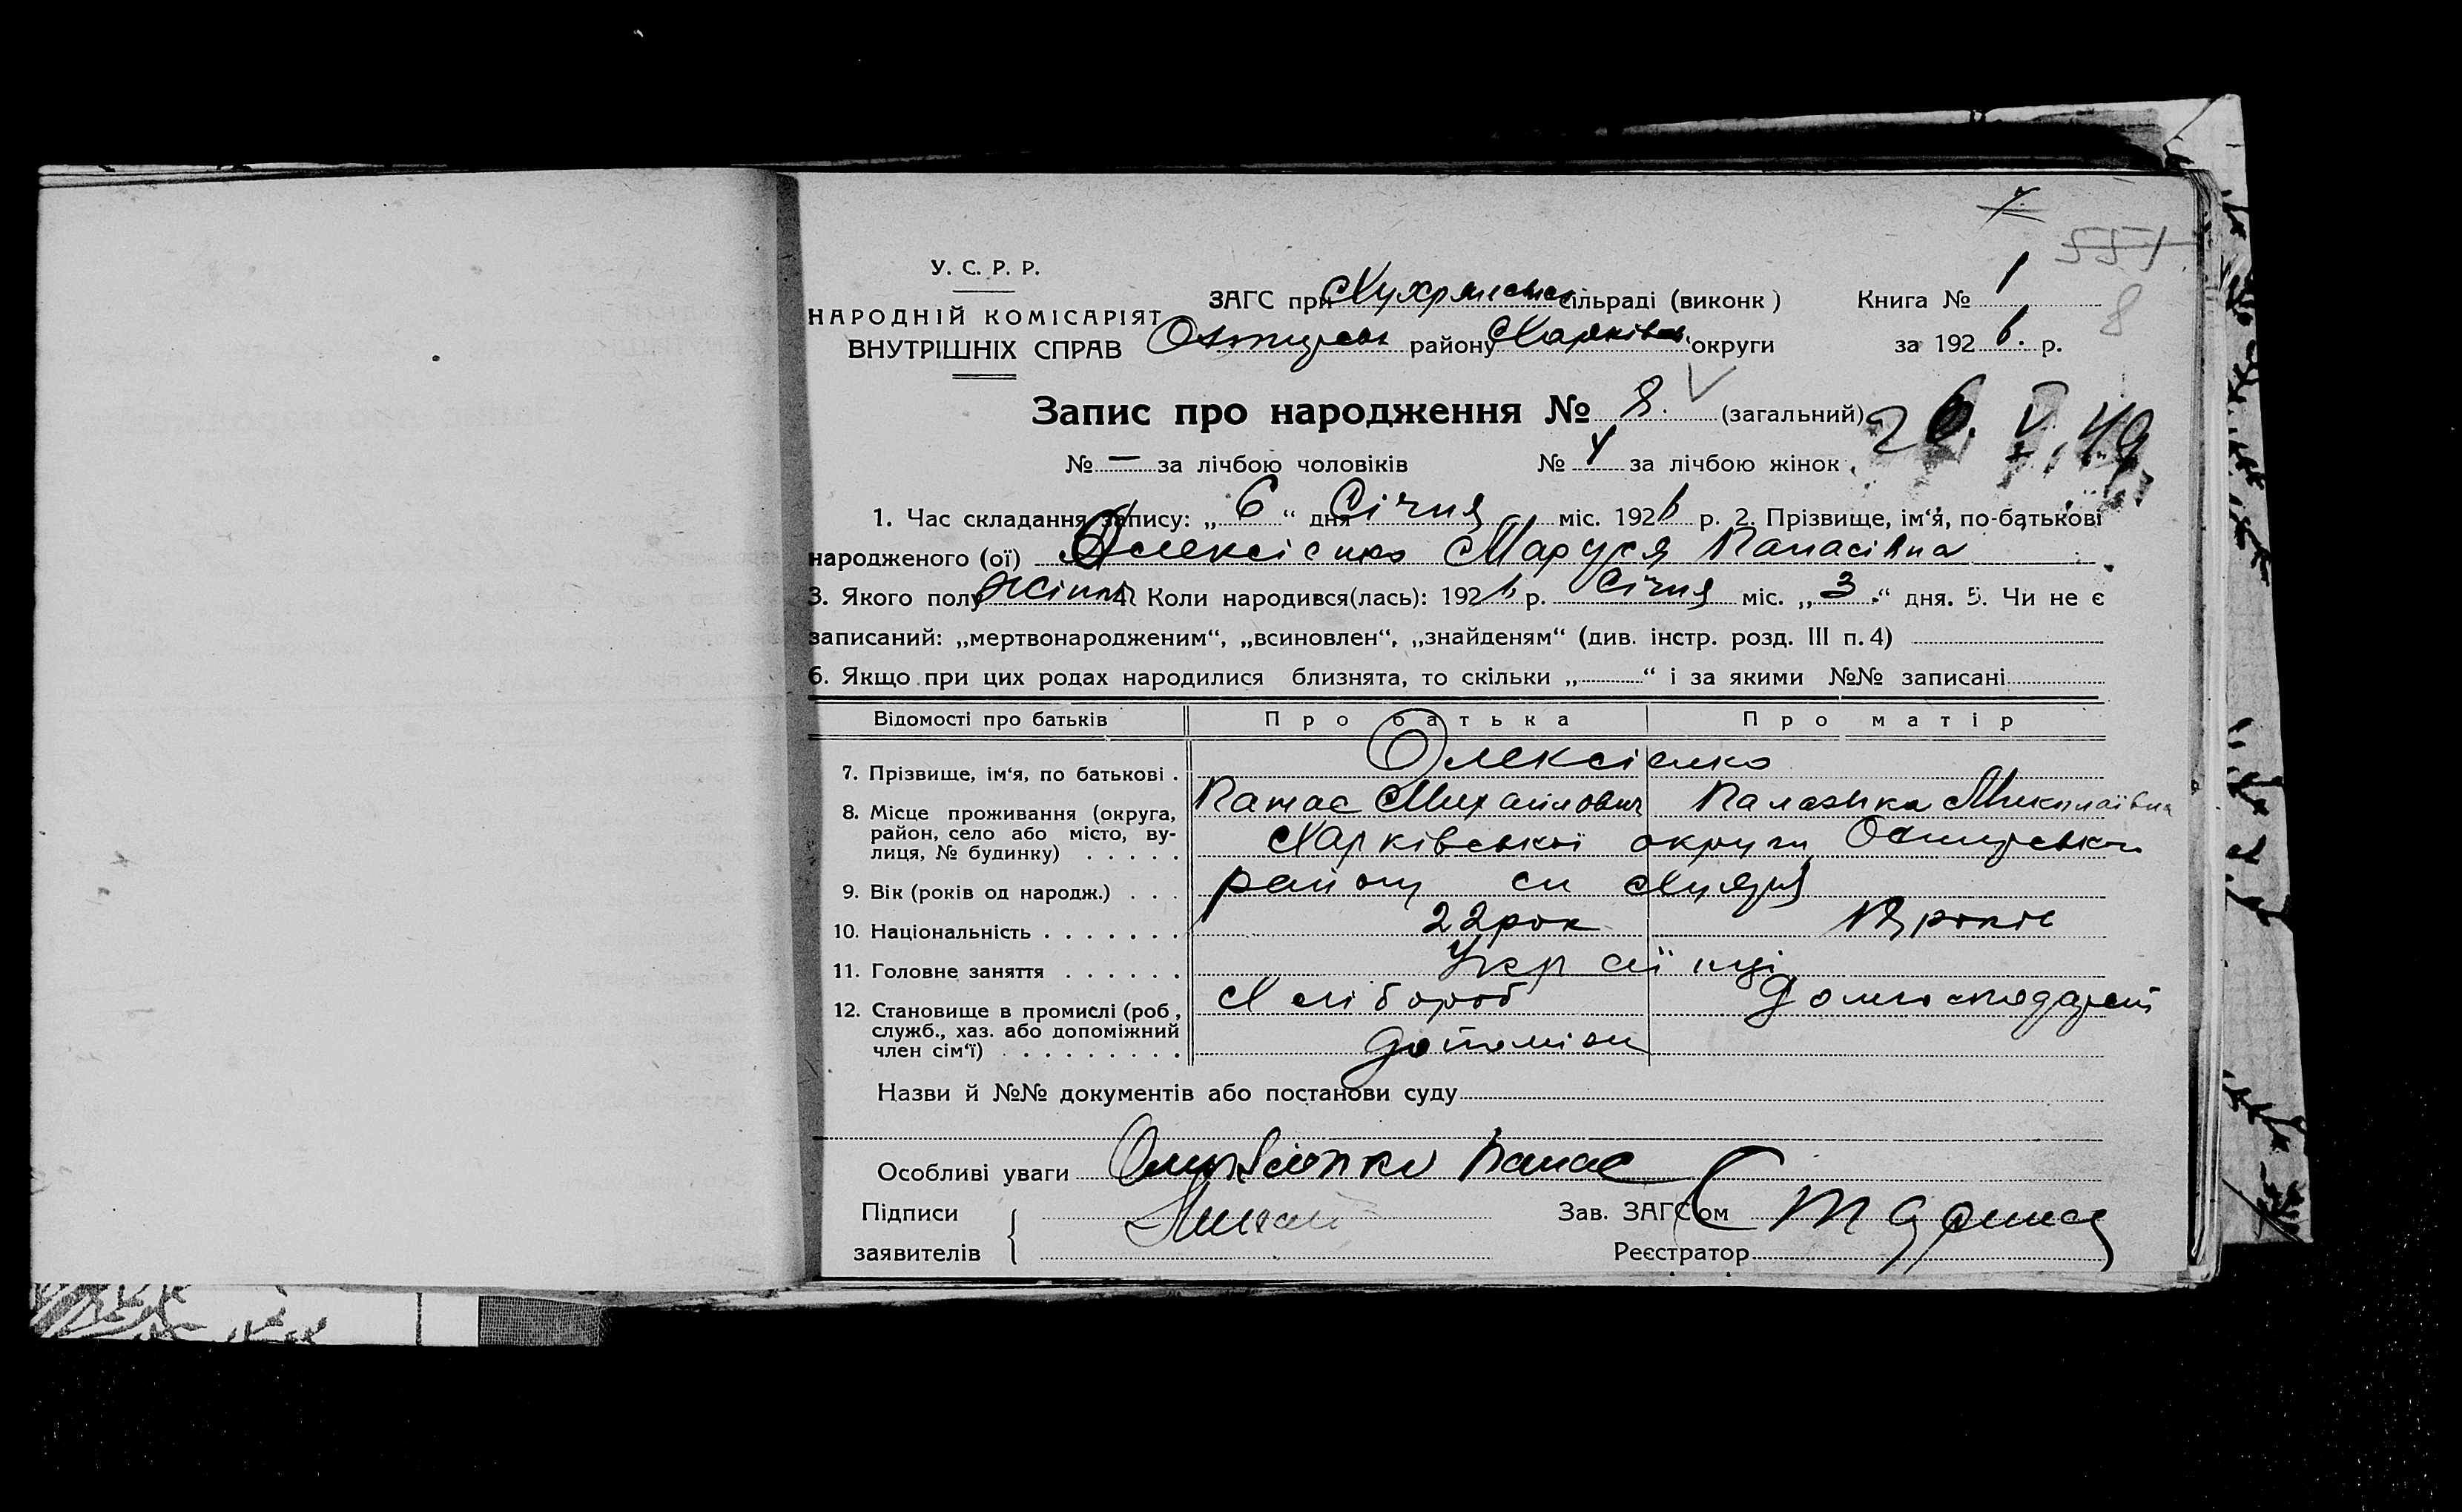 7
551
8
У. С. Р. Р.
НАРОДНІЙ КОМІСАРІЯТ
ВНУТРІШНІХ СПРАВ
ЗАГС при сільраді (виконк ) Книга № 1
району Харківськ. округи за 1926. р.
Запис про народження № 8. (загальний)
26. V. 49
№ — за лічбою чоловіків № 4 за лічбою жінок
1. Час складання запису: „ 6 “ дня Січня міс. 1926 р. 2. Прізвище, ім‘я, по-батькові
народженого (ої) Олексієнко Маруся Панасівна
3. Якого полу жіноч 4. Коли народився(лась): 1926 р. Січня міс. „ 3 “ дня. 5. Чи не є
записаний: „мертвонародженим“, „всиновлен“, „знайденям“ (див. інстр. розд. III п. 4)
6. Якщо при цих родах народилися близнята, то скільки „ “ і за якими №№ записані
Відомості про батьків Про батька Про матір
7. Прізвище, ім‘я, по батькові . Олексієнко
Панас Михайлович Палажка Миколаївна
8. Місце проживання (округа,
район, село або місто, ву-
лиця, № будинку) . . . . .
Харківської округи Охтирськом
району
9. Вік (років од народж.) . . . 22 рок років
10. Національність . . . . . . . Українці
11. Головне заняття . . . . . . Хлібороб
12. Становище в промислі (роб ,
служб., хаз. або допоміжний
член сім‘ї) . . . . . . . . .
Назви й №№ документів або постанови суду
Особливі уваги Панас
Підписи
заявителів
Зав. ЗАГСом
Реєстратор